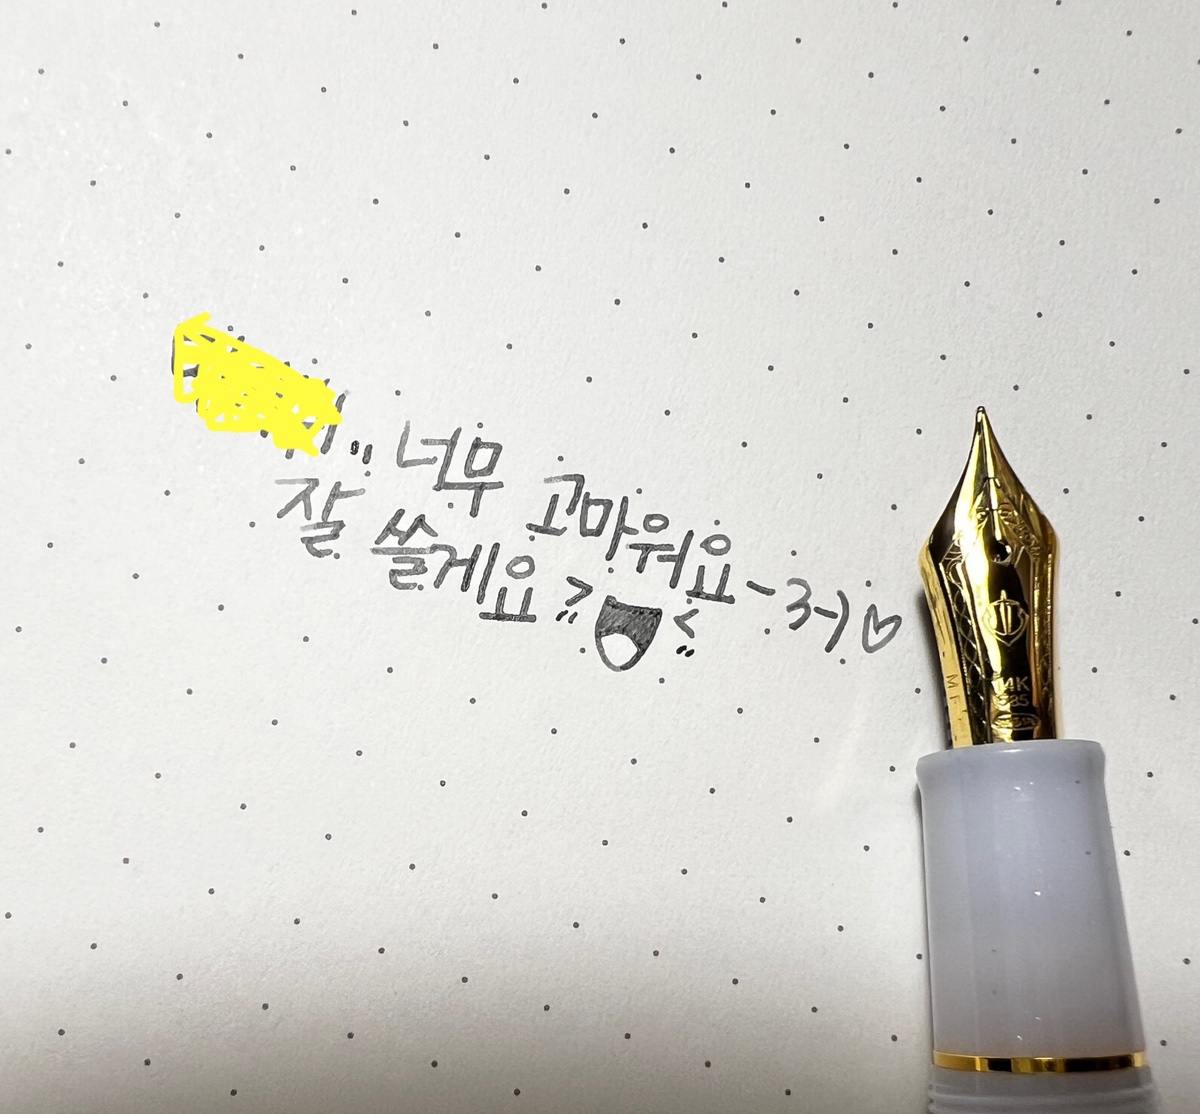 너무 고마워요~3~)♡
잘 쓸게요
14K
585